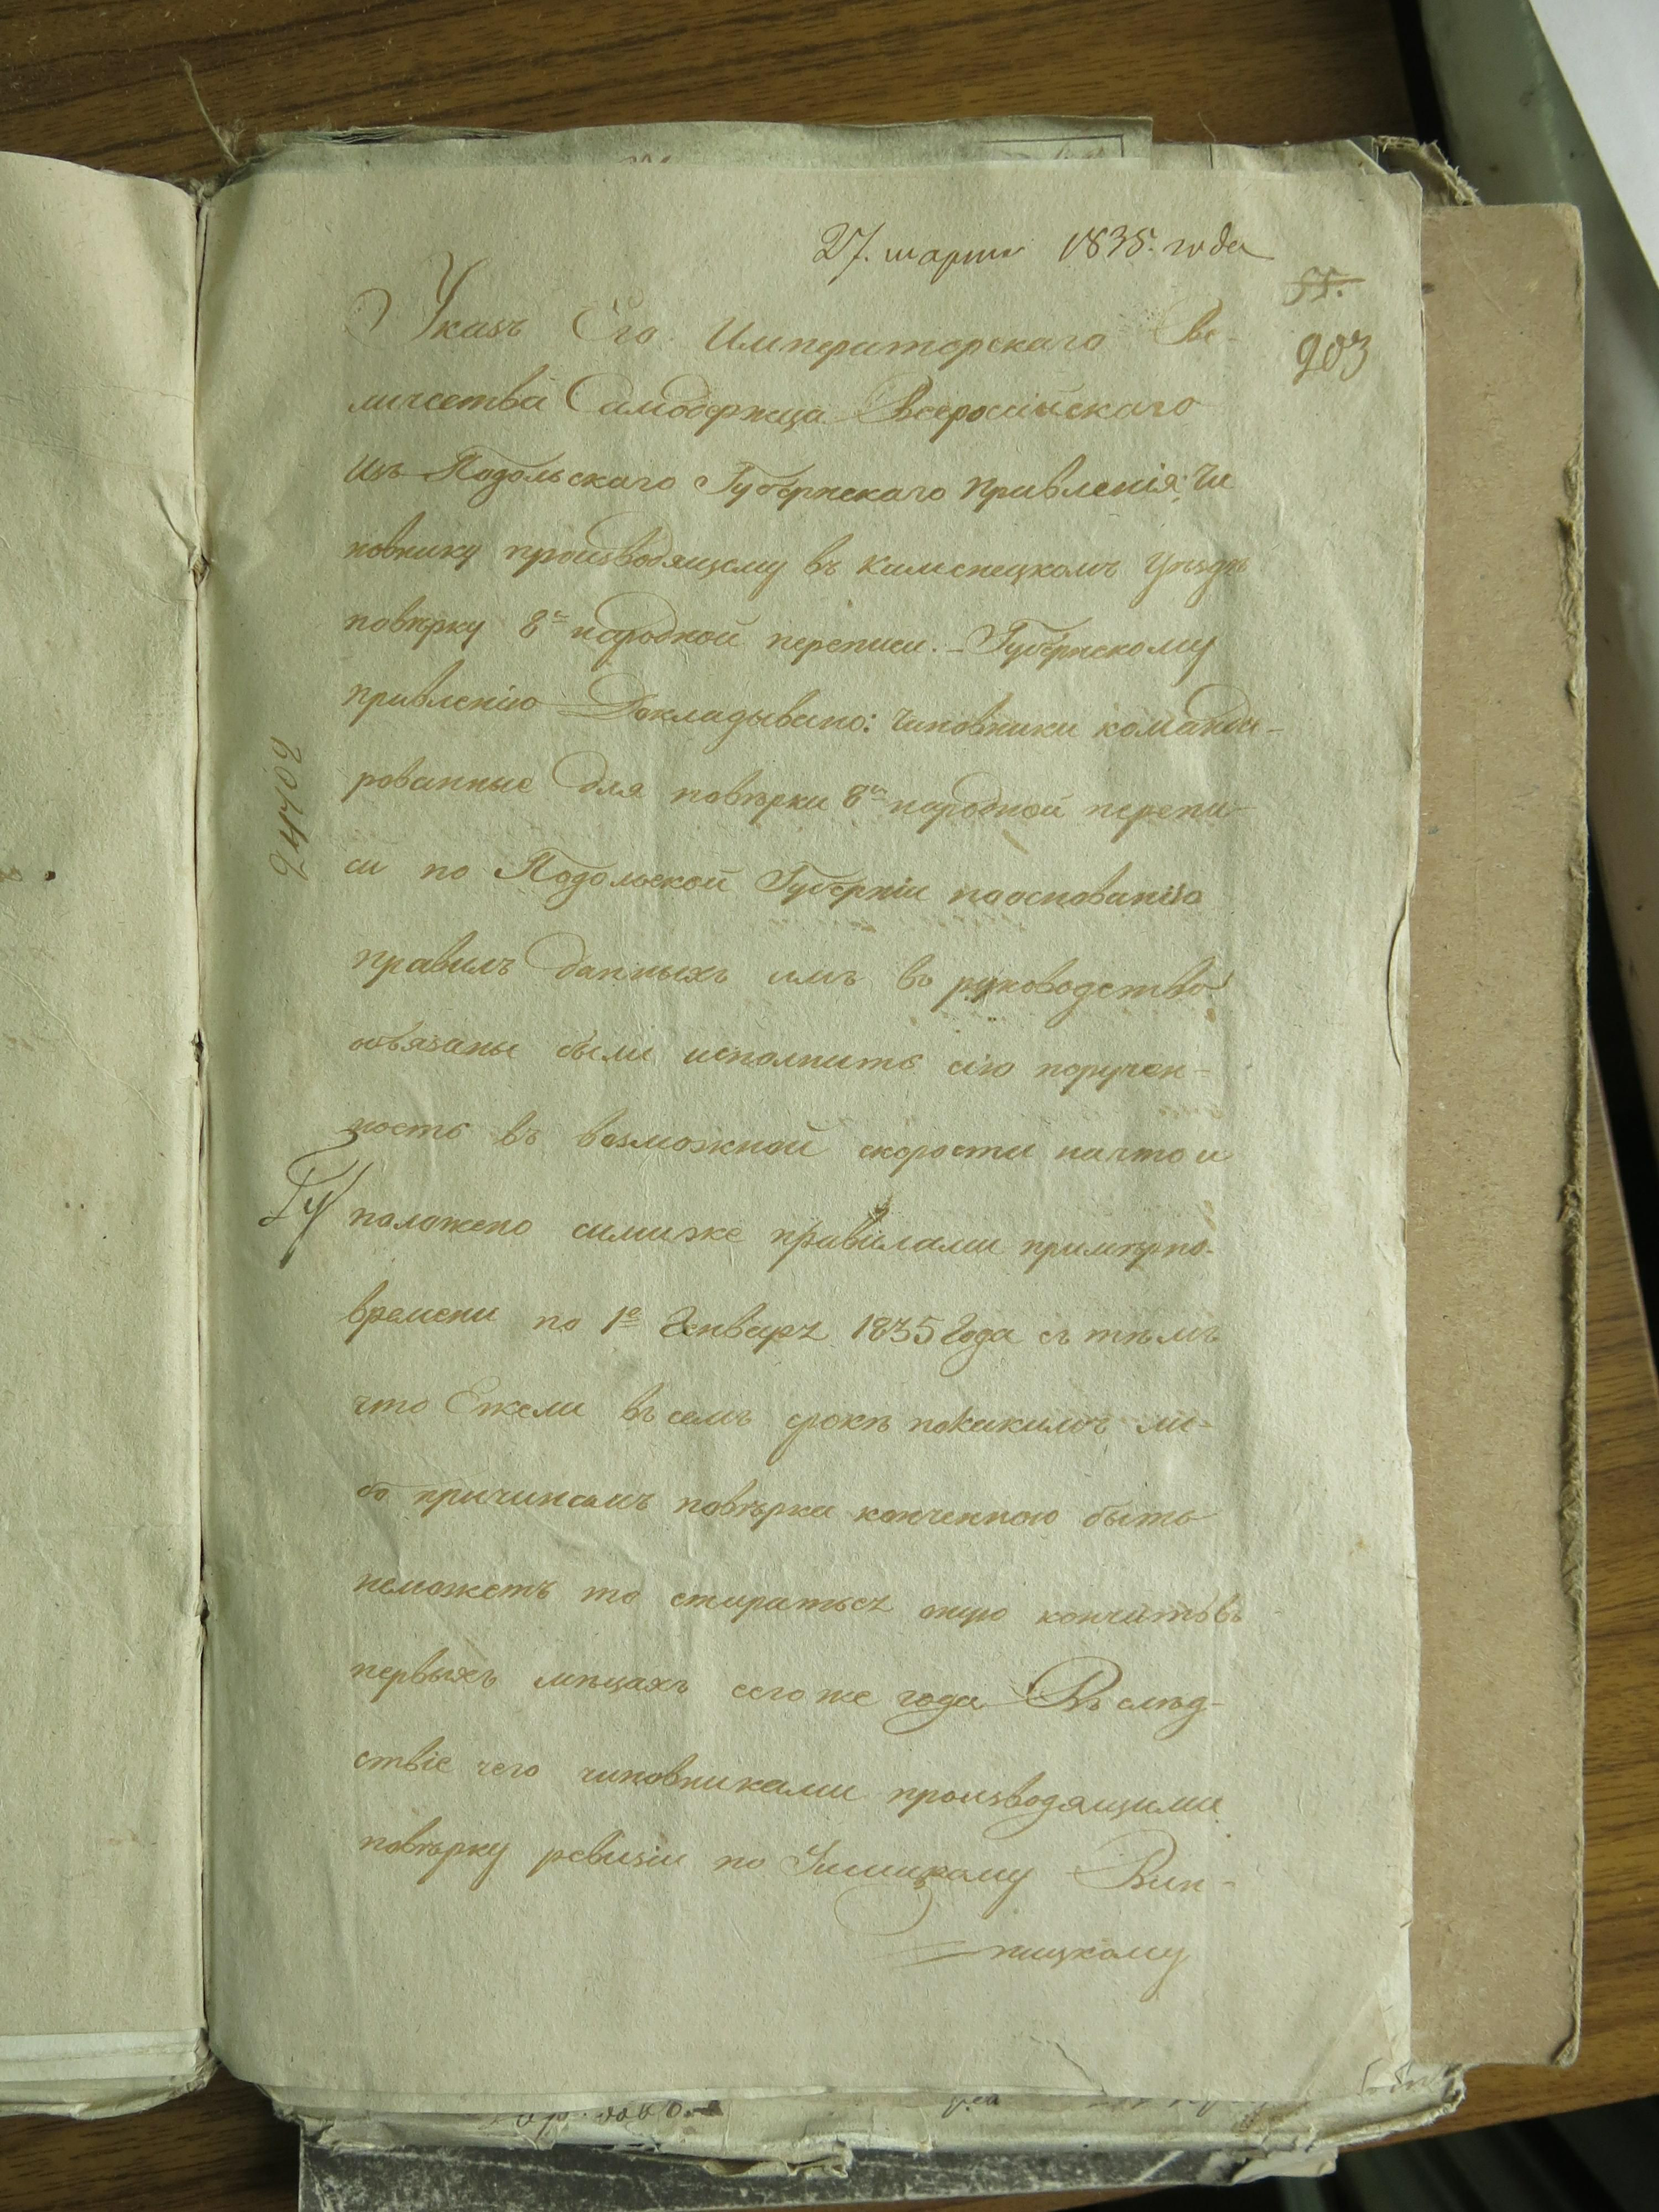 27. марта 1835. года
55.
203
Указъ Его Императорскаго Ве-
личества Самодержца Всероссійскаго
изъ Подольскаго Губернскаго Правленія, Чи
новнику производящему въ Каменецкомъ Уѣздѣ
повѣрку 8й народной переписи. - Губернскому
правленію Докладывано: Чиновники команди-
рованные для повѣрки 8й народной перепи-
си по Подольской Губерніи наоснованіи
правилъ данныхъ имъ въ руководство
обязаны были исполнить сію поручен-
ность въ возможной скорости начто и
положено симиже правилами примѣрно
времени по 1е Генваря 1835 Года съ тѣмъ
что Ежели въ семъ срокѣ покакимъ ли-
бо причинамъ повѣрка конченною быть
неможетъ то стараться оную кончить въ
первыхъ мѣцахъ сегоже года Въ слѣд-
ствіе чего чиновниками производящими
повѣрку ревизіи по Ушицкому Вин-
ницкому